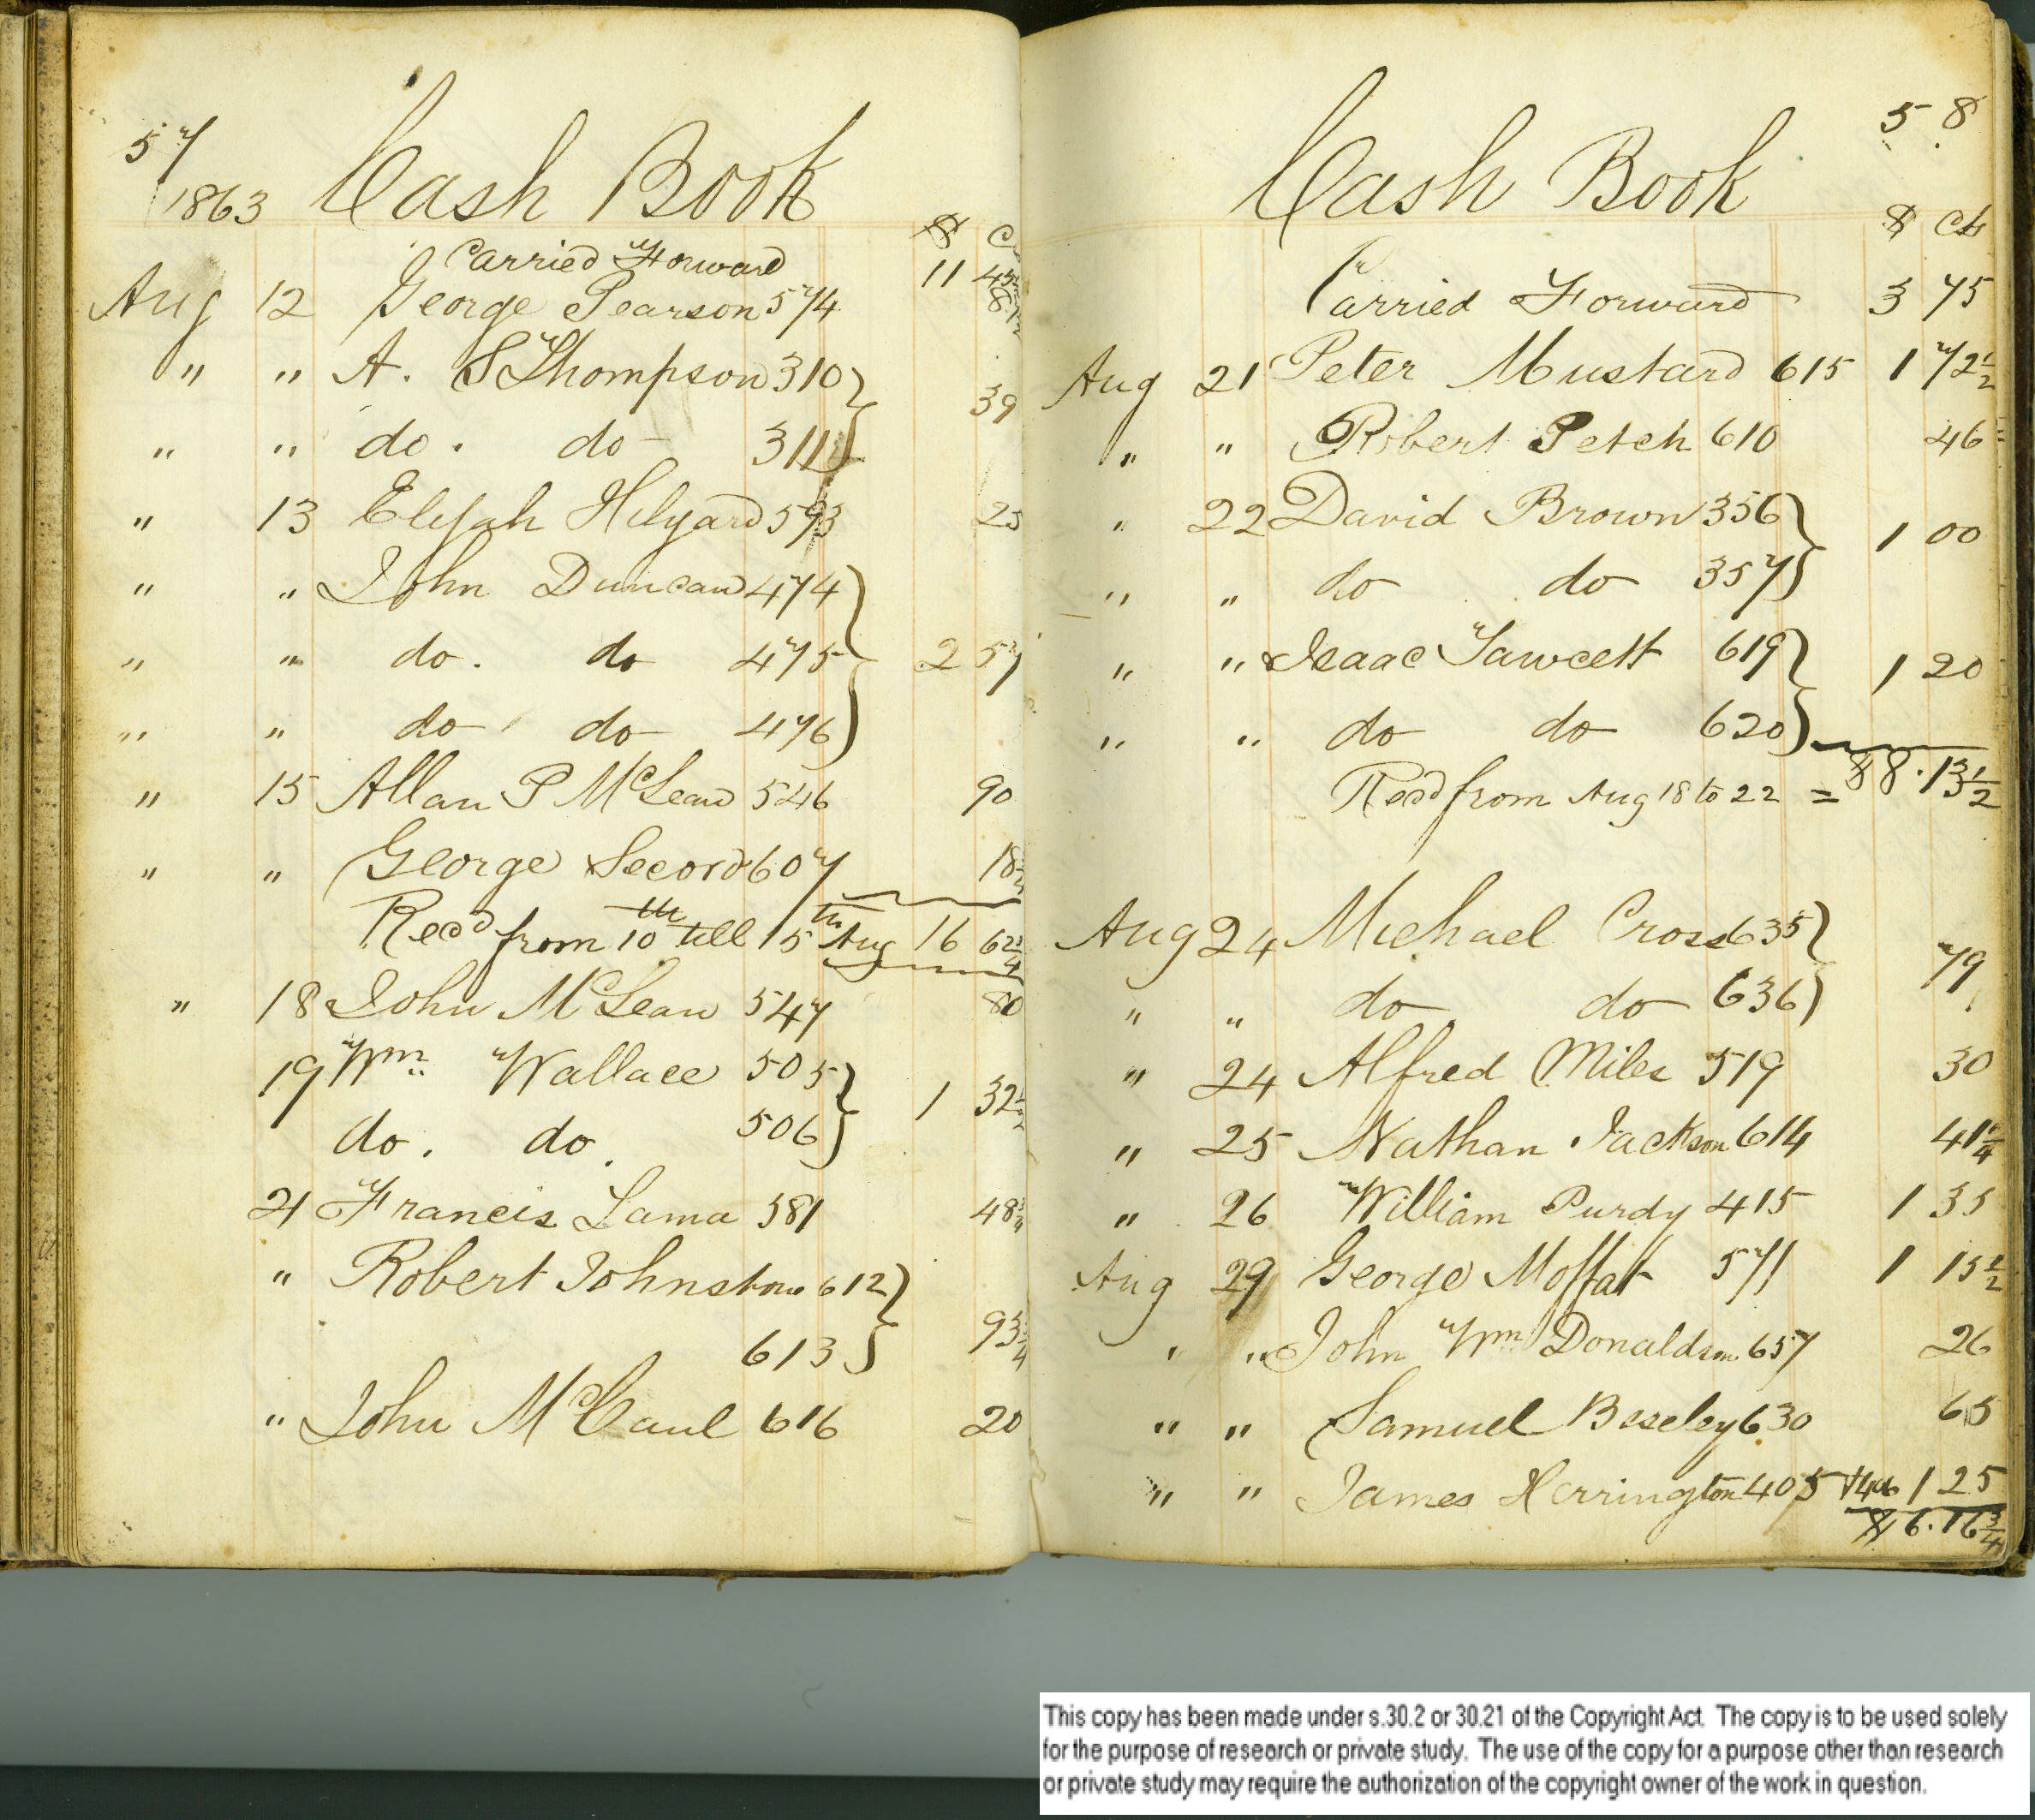 57
1863 Cash Book
$ C
Carried Forward 11 45
Aug 12 George Pearson 574
" " A. S Thompson 310 } 39
" " do. do 311 }
" 13 Elijah Hilyard 593 25
" " John Duncan 474 }
" " do. do 475 } 2 57
" " do do 476 }
" 15 Allan P McLean 546 90
" " George Secord 607 18
Recd from 10th till 15th Aug 16 62 3/4
" 18 John McLean 547 80
19 Wm Wallace 505 } 1 32 1/2
do. do. 506 }
21 Francis Lama 581 48 3/4
" Robert Johnston 612 }
613 } 93 3/4
" John McCaul 616 20
58
Cash Book
$ Cts
Carried Forward 3 75
Aug 21 Peter Mustard 615 1 72 1/2
" " Robert Petch 610 46
" 22 David Brown 356 } 1 00
" " do do 357 }
" " Isaac Fawcett 619 } 1 20
" " do do 620 }
Recd from Aug 18 to 22 = $8.13 1/2
Aug 24 Michael Cross 635 } 79
" " do do 636 }
" 24 Alfred Miles 519 30
" 25 Nathan Jackson 614 41 1/4
" 26 William Purdy 415 1 35
Aug 29 George Moffat 571 1 15 1/2
" " John Wm Donaldson 657 26
" " Samuel Beseley 630 65
" " James Herrington 405 + 406 1 25
$6.16 3/4
This copy has been made under s.30.2 or 30.21 of the Copyright Act. The copy is to be used solely
for the purpose of research or private study. The use of the copy for a purpose other than research
or private study may require the authorization of the copyright owner of the work in question.